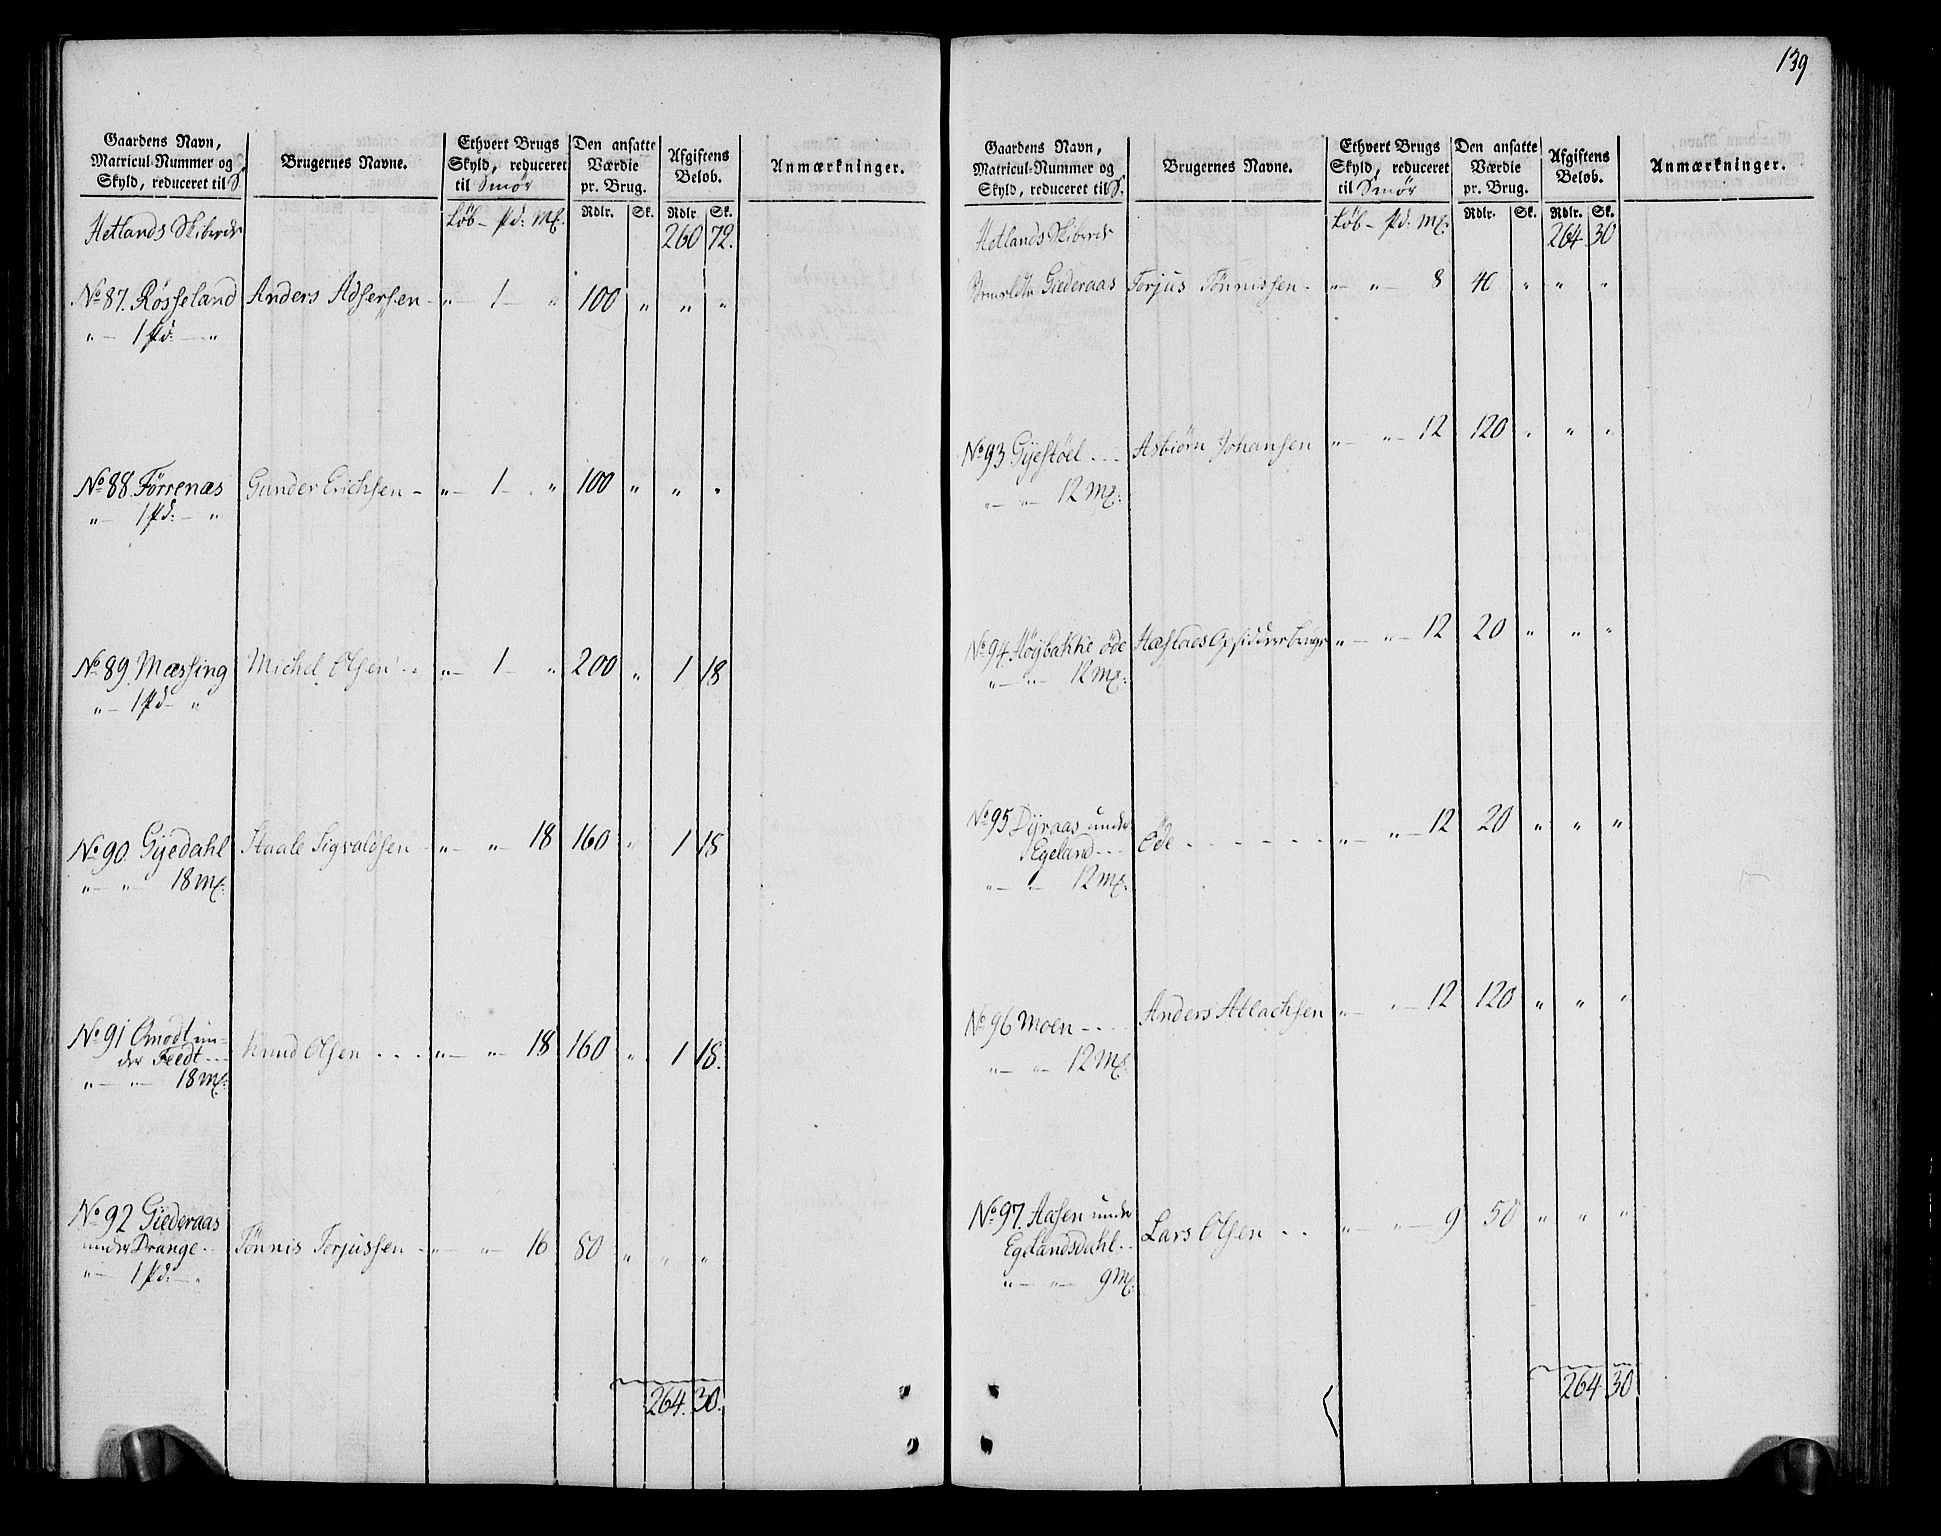 139
Gaardens Navn,
Matricul-Nummer og
Skyld, reduceret til S.
Brugernes Navne.
Ethvert Brugs
Skyld, reduceret
til Smør
Den ansatte
Værdie
pr. Brug.
Afgiftens
Beløb.
Anmærkninger.
Hetlands Skibrede
Løb - pd: mk.
Rdlr. Sk. Rdlr. Sk.
260 72.
No 87. Røsseland Anders Adsersen - „ - 1 - „ 100 „ „ „
„ - 1 pd: - „
No 88. Førrenæs Gunder Erichsen - „ - 1 - „ 100 „ „ „
„ - 1 pd: - „
No 89. Mæssing Michel Olsen - - „ - 1 - „ 200 „ 1 18
„ - 1 pd - „
No 90. Gyedahl Staale Sigvaldsen „ - „ - 18 160 „ 1 18
„ - „ - 18 mk:
No 91 Omodt un-
der Feedt - - - Knud Olsen . . . „ - „ - 18 160 „ 1 18.
„ - „ - 18 mk:
No 92 Giederaas
under Drange - Tønnis Torjussen - „ - „ - 16 80 „ „ „
„ - 1 pd: - „
264. 30.
Gaardens Navn,
Matricul-Nummer og
Skyld, reduceret til S.
Brugernes Navne.
Ethvert Brugs
Skyld, reduceret
til Smør
Den ansatte
Værdie
pr. Brug.
Afgiftens
Beløb.
Anmærkninger.
Hetlands Skibrede
Løb - pd: mk:
Rdlr. Sk. Rdlr. Sk.
264 30
Giederaas Torjus Tønnissen - „ - „ - 8 40 „ „ „
No 93 Gyestøel - - - Asbiørn Johansen „ - „ - 12 120 „ „ „
„ - „ - 12 mk:
No 94 Høybakke øde Hæstads Opsiddere bruge „ - „ - 12 20 „ „ „
„ - „ - 12 mk:
No 95 Dyraas under
Egeland - - - Øde - - - - - - „ - „ - 12 20 „ „ „
„ - „ - 12 mk:
No 96 Moen - - - - Anders Atlachsen „ - „ - 12 120 „ „ „
„ - „ - 12 mk:
No 97. Aasen under
Egelandsdahl - - Lars Olsen - - „ - „ - 9 50 „ „ „
„ - „ - 9 mk:
264 30